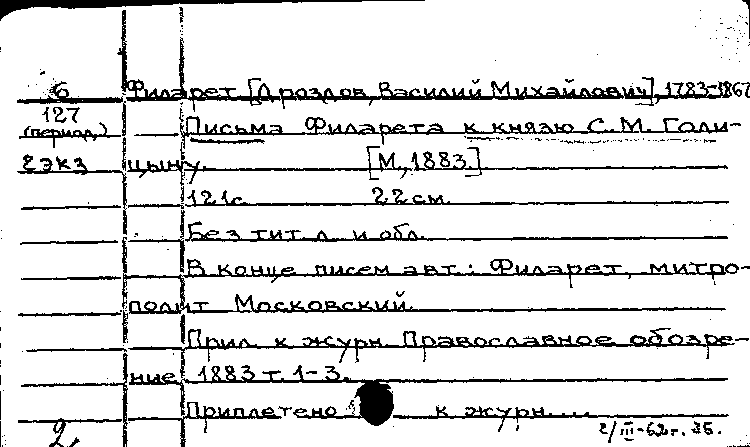 6 Филарет [Дроздов, Василий Михайлович], 1783-1867
127
(период.) Письма Филарета к князю С. М. Голи-
2 экз цыну. [М., 1883.]
121с. 22 см.
Без тит. л. и обл.
В конце писем авт.: Филарет, митро-
полит Московский.
Прил. к журн. Православное обозре-
ние 1883 т. 1-3.
Приплетено к журн....
2.